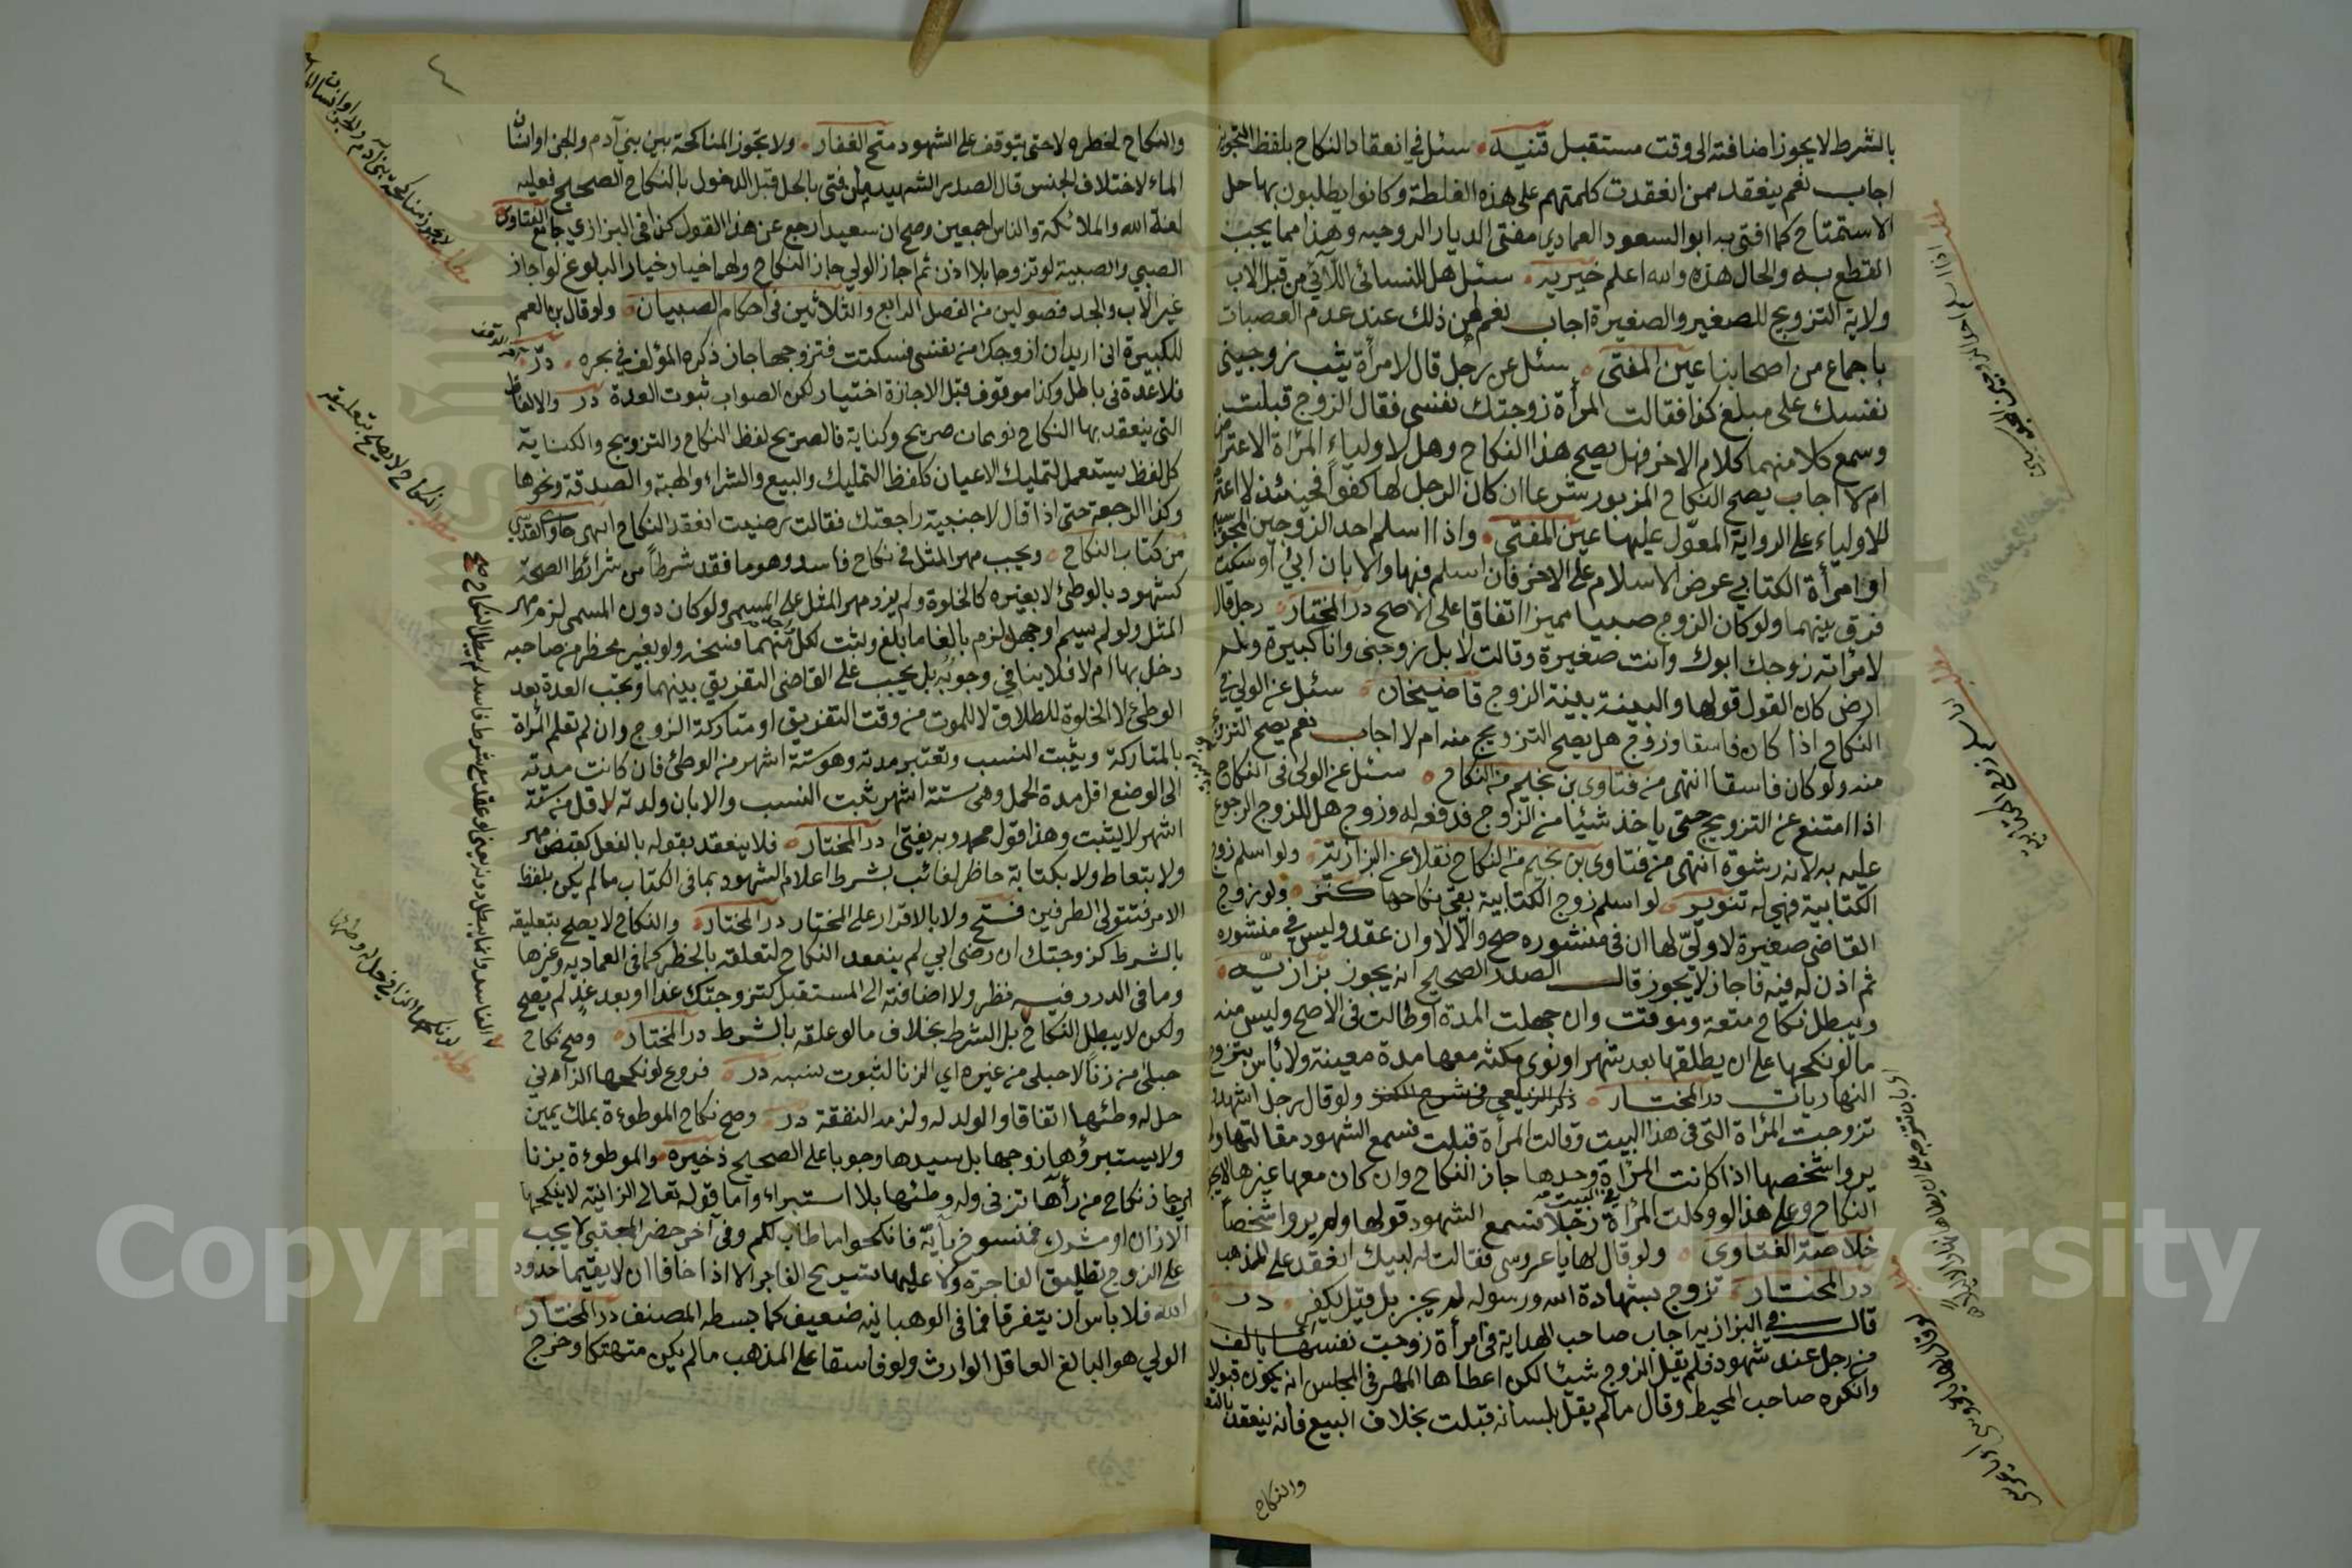 بالشرط لا يجوز اضافته الى وقت مستقبل قنيه سئل في انعقاد النكاح بلفظ التجويز
اجاب نعم ينعقد ممن انعقدت كلمتهم على هذه الغلطة وكانوا يطلبون بها حل
الاستمتاع كما افتى به ابو السعود العمادي مفتي الديار الروميه وهذا مما يجب
القطع به والحال هذه والله اعلم خيريه سئل هل للنسائى اللآتي من قبل الاب
ولاية التزويج للصغير والصغيرة اجاب نعم لهن ذلك عند عدم العصبات
باجماع من اصحابنا عين المفتى سئل عن رجل قال لامرأة يثب زوجيني
نفسك على مبلغ كذا فقالت المرأة زوجتك نفسى فقال الزوج قبلت
وسمع كلا منهما كلام الاخر فهل يصح هذا النكاح وهل لاولياء المرأة الاعتراض
ام لا اجاب يصح النكاح المزبور شرعا ان كان الرجل لها كفوا فحينئذ لا اعتراض
للاولياء على الرواية المعوّل عليها عين المفتى واذا اسلم احد الزوجين المجوسيين
او امرأة الكتابي عرض الاسلام على الاخر فان اسلم فبها والا بان ابي او سكت
فرق بينهما ولو كان الزوج صبيا مميزا اتفاقا على الاصح در المختار رجل قال
لامرأته زوجك ابوك وانت صغيرة وقالت لا بل زوجنى وانا كبيرة ولم
ارض كان القول قولها والبينة بينة الزوج قاضيخان سئل عن الولي في
النكاح اذا كان فاسقا وزوج هل يصح التزويج منه ام لا اجاب نعم يصح التزويج
منه ولو كان فاسقا انتهى من فتاوى بن نجيم من النكاح سئل عن الولى فى النكاح
اذا امتنع عن التزويج حتى ياخذ شيئا من الزوج فدفعه له وزوج هل للزوج الرجوع
عليه به لانه رشوة انتهى من فتاوى بن نجيم من النكاح نقلا عن البزازية ولو اسلم زوج
الكتابية فهي له تنوير لو اسلم زوج الكتابية بقى نكاحها كنز ولو زوج
القاضى صغيرة لا ولي لها ان في منشوره صح والّا لا وان عقد وليس في منشوره
ثم اذن له فيه فاجاز لا يجوز قال الصدر الصحيح انه يجوز بزازيّه
ويبطل نكاح متعة وموقت وان جهلت المدة او طالت فى الاصح وليس منه
ما لو نكحها على ان يطلقها بعد شهر او نوى مكثه معها مدة معينة ولا بأس بتزوج
النهاريات در المختار ذكر الزيلعي فى شرح الكنز ولو قال رجل اشهدوا
تزوجت المرأة التى فى هذا البيت وقالت المرأة قبلت فسمع الشهود مقالتها ولم
يروا شخصها اذا كانت المرأة وحدها جاز النكاح وان كان معها غيرها لا يجوز
النكاح وعلى هذا لو وكلت المرأة رجلا فسمع الشهود قولها ولم يروا شخصا
في البيت
خلاصة الفتاوى ولو قال لها يا عروسى فقالت له لبيك انعقد على المذهب
در المختار تزوج بشهادة الله ورسوله لم يجز بل قيل يكفر در
قال في البزازيه اجاب صاحب الهداية فى امرأة زوجت نفسها بالف
من رجل عند شهود فلم يقل الزوج شيئا لكن اعطاها المهر فى المجلس انه يكون قبولا
وانكره صاحب المحيط وقال ما لم يقل بلسانه قبلت بخلاف البيع فانه ينعقد بالتعاطي
والنكاح
والنكاح لخطره لا حتى يتوقف على الشهود منح الغفار ولا تجوز المناكحة بين بني آدم والجن او انسان
الماء لاختلاف الجنس قال الصدر الشهيد من افتى بالحل قبل الدخول بالنكاح الصحيح فعليه
لعنة الله والملائكة والناس اجمعين وصح ان سعيدا رجع عن هذا القول كذا في البزازي جامع الفتاوى
الصبي والصبية لو تزوجا بلا اذن ثم اجاز الولي جاز النكاح ولهما خيار البلوغ لو اجاز
غير الاب والجد فصولين من الفصل الرابع والثلاثين فى احكام الصبيان ولو قال بن العم
للكبيرة انى اريد ان ازوجك من نفسى فسكتت فتزوجها جاز ذكره المؤلف في بحره در
فلا عدة فى باطل وكذا موقوف قبل الاجازة اختيار لكن الصواب ثبوت العدة در والالفاظ
التى ينعقد بها النكاح نوعان صريح وكناية فالصريح لفظ النكاح والتزويج والكناية
كل لفظ يستعمل لتمليك الاعيان كلفظ التمليك والبيع والشراء والهبة والصدقة ونحوها
وكذا الرجعة حتى اذا قال لاجنبية راجعتك فقالت رضيت انعقد النكاح انتهى حاوى القدسي
من كتاب النكاح ويجب مهر المثل فى نكاح فاسد وهو ما فقد شرطاً من شرائط الصحة
كشهود بالوطئ لا بغيره كالخلوة ولم يزد مهر المثل على المسمى ولو كان دون المسمى لزم مهر
المثل ولو لم يسم او جهل لزم بالغا ما بلغ ويثبت لكل منهما فسخه ولو بغير محضر من صاحبه
دخل بها ام لا فلا ينافي وجوبه بل يجب على القاضى التفريق بينهما وتجب العدة بعد
الوطئ لا الخلوة للطلاق لا للموت من وقت التفريق او متاركة الزوج وان لم تعلم المرأة
بالمتاركة ويثبت النسب وتعتبر مدته وهو ستة اشهر من الوطئ فان كانت مدته
الى الوضع اقل مدة الحمل وهى ستة اشهر ثبت النسب والا بان ولدته لاقل من ستة
اشهر لا يثبت وهذا قول محمد وبه يفتى در المختار فلا ينعقد بقوله بالفعل كقبض مهر
ولا بتعاط ولا بكتابة حاظر لغائب بشرط اعلام الشهود بما فى الكتاب ما لم يكن بلفظ
الامر فتتولى الطرفين فتح ولا بالاقرار على المختار در المختار والنكاح لا يصح بتعليقه
بالشرط كزوجتك ان رضى ابي لم ينعقد النكاح لتعلقه بالخطر كما فى العماديه وغيرها
وما فى الدرر فيه نظر ولا اضافته الى المستقبل كتزوجتك غدا او بعد غد لم يصح
ولكن لا يبطل النكاح بل الشرط بخلاف ما لو علقه بالشرط در المختار وصح نكاح
حبلى من زنا لا حبلى من غيره اي الزنا لثبوت نسبه در فروع لو نكحها الزانى
حل له وطئها اتفاقا والولد له ولزمه النفقة در وصح نكاح الموطوءة بملك يمين
ولا يستبرؤها زوجها بل سيدها وجوبا على الصحيح ذخيره والموطوءة بزنا
اي جاز نكاح من رآها تزنى وله وطئها بلا استبراء واما قوله تعالى الزانية لا ينكحها
الا زان او مشرك فمنسوخ بآية فانكحوا ما طاب لكم وفى آخر حضر المجتبى لا يجب
على الزوج تطليق الفاجرة ولا عليها تسريح الفاجر الا اذا خافا ان لا يقيما حدود
الله فلا باس ان يتفرقا فما فى الوهبانيه ضعيف كما بسطه المصنف در المختار
الولي هو البالغ العاقل الوارث ولو فاسقا على المذهب ما لم يكن متهتكا وخرج
مطلب لا تجوز مناكحة بني آدم
مطلب النكاح لا يصح بتعليقه